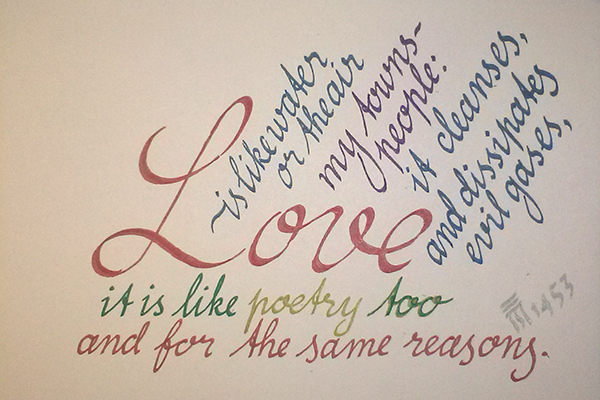 Love
is like water
or the air
my towns-
people:
it cleanses,
and dissipates
evil gases,
it is like poetry too
and for the same reasons.
1453